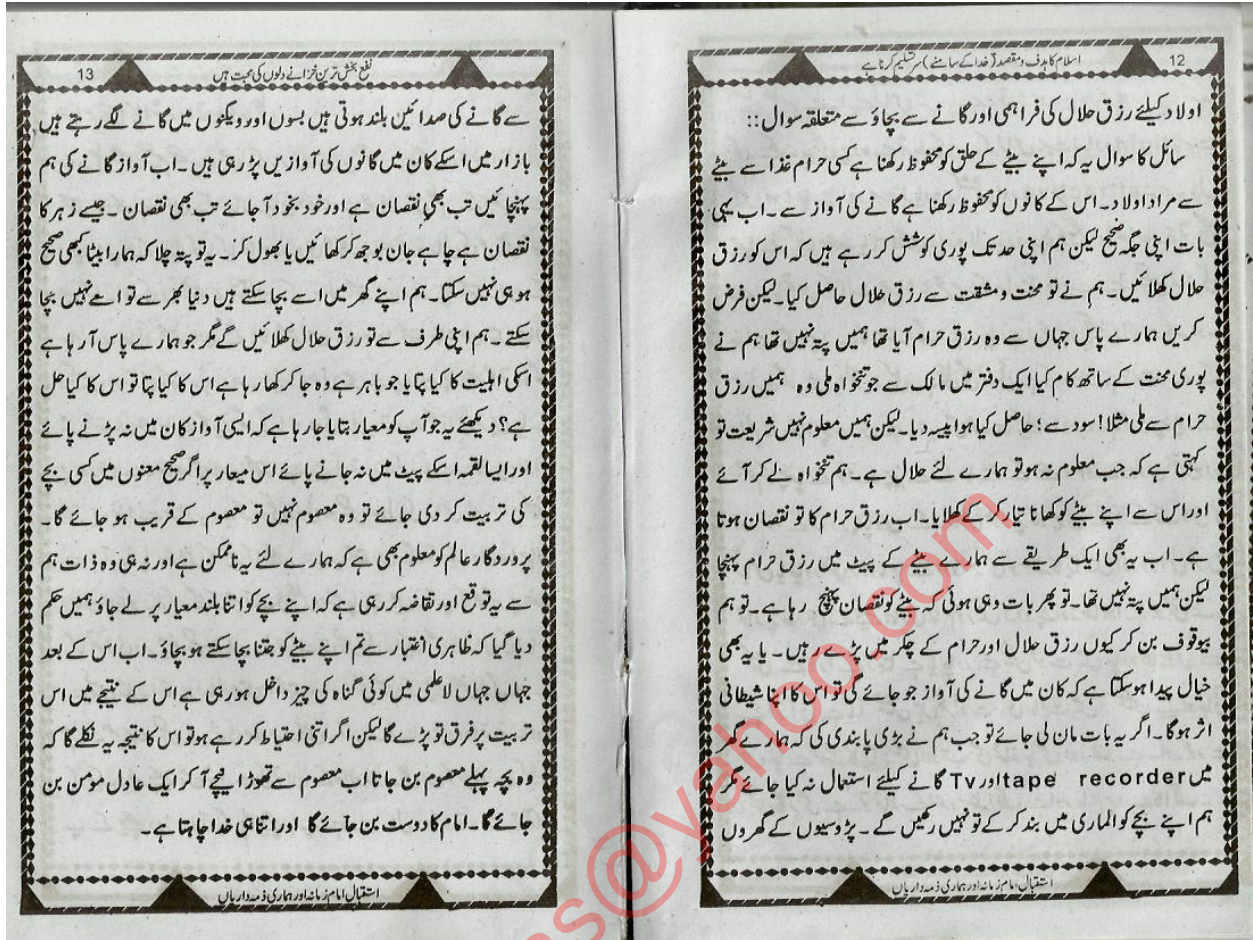 12
اسلام کا ہدف و مقصد (خدا کے سامنے) سر تسلیم کرنا ہے
اولاد کیلئے رزق حلال کی فراہمی اور گانے سے بچاؤ سے متعلقہ سوال ::
سائل کا سوال یہ کہ اپنے بیٹے کے حلق کو محفوظ رکھنا ہے کسی حرام غذا سے بیٹے
سے مراد اولاد۔ اس کے کانوں کو محفوظ رکھنا ہے گانے کی آواز سے۔ اب یہی
بات اپنی جگہ صحیح لیکن ہم اپنی حد تک پوری کوشش کر رہے ہیں کہ اس کو رزق
حلال کھلائیں۔ ہم نے تو محنت و مشقت سے رزق حلال حاصل کیا۔ لیکن فرض
کریں ہمارے پاس جہاں سے وہ رزق حرام آیا تھا ہمیں پتہ نہیں تھا ہم نے
پوری محنت کے ساتھ کام کیا ایک دفتر میں مالک سے جو تنخواہ ملی وہ ہمیں رزق
حرام سے ملی مثلا! سود سے؛ حاصل کیا ہوا پیسہ دیا۔ لیکن ہمیں معلوم نہیں شریعت تو
کہتی ہے کہ جب معلوم نہ ہو تو ہمارے لئے حلال ہے۔ ہم تنخواہ لے کر آئے
اور اس سے اپنے بیٹے کو کھانا تیار کر کے کھلایا۔ اب رزق حرام کا تو نقصان ہوتا
ہے۔ اب یہ بھی ایک طریقے سے ہمارے بیٹے کے پیٹ میں رزق حرام پہنچا
لیکن ہمیں پتہ نہیں تھا۔ تو پھر بات وہی ہوئی کہ بیٹے کو نقصان پہنچ رہا ہے۔ تو ہم
بیوقوف بن کر کیوں رزق حلال اور حرام کے چکر میں پڑے رہیں۔ یا یہ بھی
خیال پیدا ہو سکتا ہے کہ کان میں گانے کی آواز جو جائے گی تو اس کا اپنا شیطانی
اثر ہوگا۔ اگر یہ بات مان لی جائے تو جب ہم نے بڑی پابندی کی کہ ہمارے گھر
میں tape recorder اور Tv گانے کیلئے استعمال نہ کیا جائے مگر
ہم اپنے بچے کو الماری میں بند کر کے تو نہیں رکھیں گے۔ پڑوسیوں کے گھروں
استقبال امام زمانہ اور ہماری ذمہ داریاں
13
نفع بخش ترین خزانے دلوں کی محبت ہیں
سے گانے کی صدائیں بلند ہوتی ہیں بسوں اور ویگنوں میں گانے لگے رہتے ہیں
بازار میں اسکے کان میں گانوں کی آوازیں پڑ رہی ہیں۔ اب آواز گانے کی ہم
پہنچائیں تب بھی نقصان ہے اور خود بخود آ جائے تب بھی نقصان۔ جیسے زہر کا
نقصان ہے چاہے جان بوجھ کر کھائیں یا بھول کر۔ یہ تو پتہ چلا کہ ہمارا بیٹا کبھی صحیح
ہو ہی نہیں سکتا۔ ہم اپنے گھر میں اسے بچا سکتے ہیں دنیا بھر سے تو اسے نہیں بچا
سکتے۔ ہم اپنی طرف سے تو رزق حلال کھلائیں گے مگر جو ہمارے پاس آ رہا ہے
اسکی اہلیت کا کیا پتا یا جو باہر ہے وہ جا کر کھا رہا ہے اس کا کیا پتا تو اس کا کیا حل
ہے؟ دیکھئے یہ جو آپ کو معیار بتایا جا رہا ہے کہ ایسی آواز کان میں نہ پڑنے پائے
اور ایسا لقمہ اسکے پیٹ میں نہ جانے پائے اس میعار پر اگر صحیح معنوں میں کسی بچے
کی تربیت کر دی جائے تو وہ معصوم نہیں تو معصوم کے قریب ہو جائے گا۔
پروردگار عالم کو معلوم بھی ہے کہ ہمارے لئے یہ ناممکن ہے اور نہ ہی وہ ذات ہم
سے یہ توقع اور تقاضہ کر رہی ہے کہ اپنے بچے کو اتنا بلند معیار پر لے جاؤ ہمیں حکم
دیا گیا کہ ظاہری اعتبار سے تم اپنے بیٹے کو جتنا بچا سکتے ہو بچاؤ۔ اب اس کے بعد
جہاں جہاں لاعلمی میں کوئی گناہ کی چیز داخل ہو رہی ہے اس کے نتیجے میں اس
تربیت پر فرق تو پڑے گا لیکن اگر اتنی احتیاط کر رہے ہو تو اس کا نتیجہ یہ نکلے گا کہ
وہ بچہ پہلے معصوم بن جاتا اب معصوم سے تھوڑا نیچے آ کر ایک عادل مومن بن
جائے گا۔ امام کا دوست بن جائے گا اور اتنا ہی خدا چاہتا ہے۔
استقبال امام زمانہ اور ہماری ذمہ داریاں
s@yahoo.com